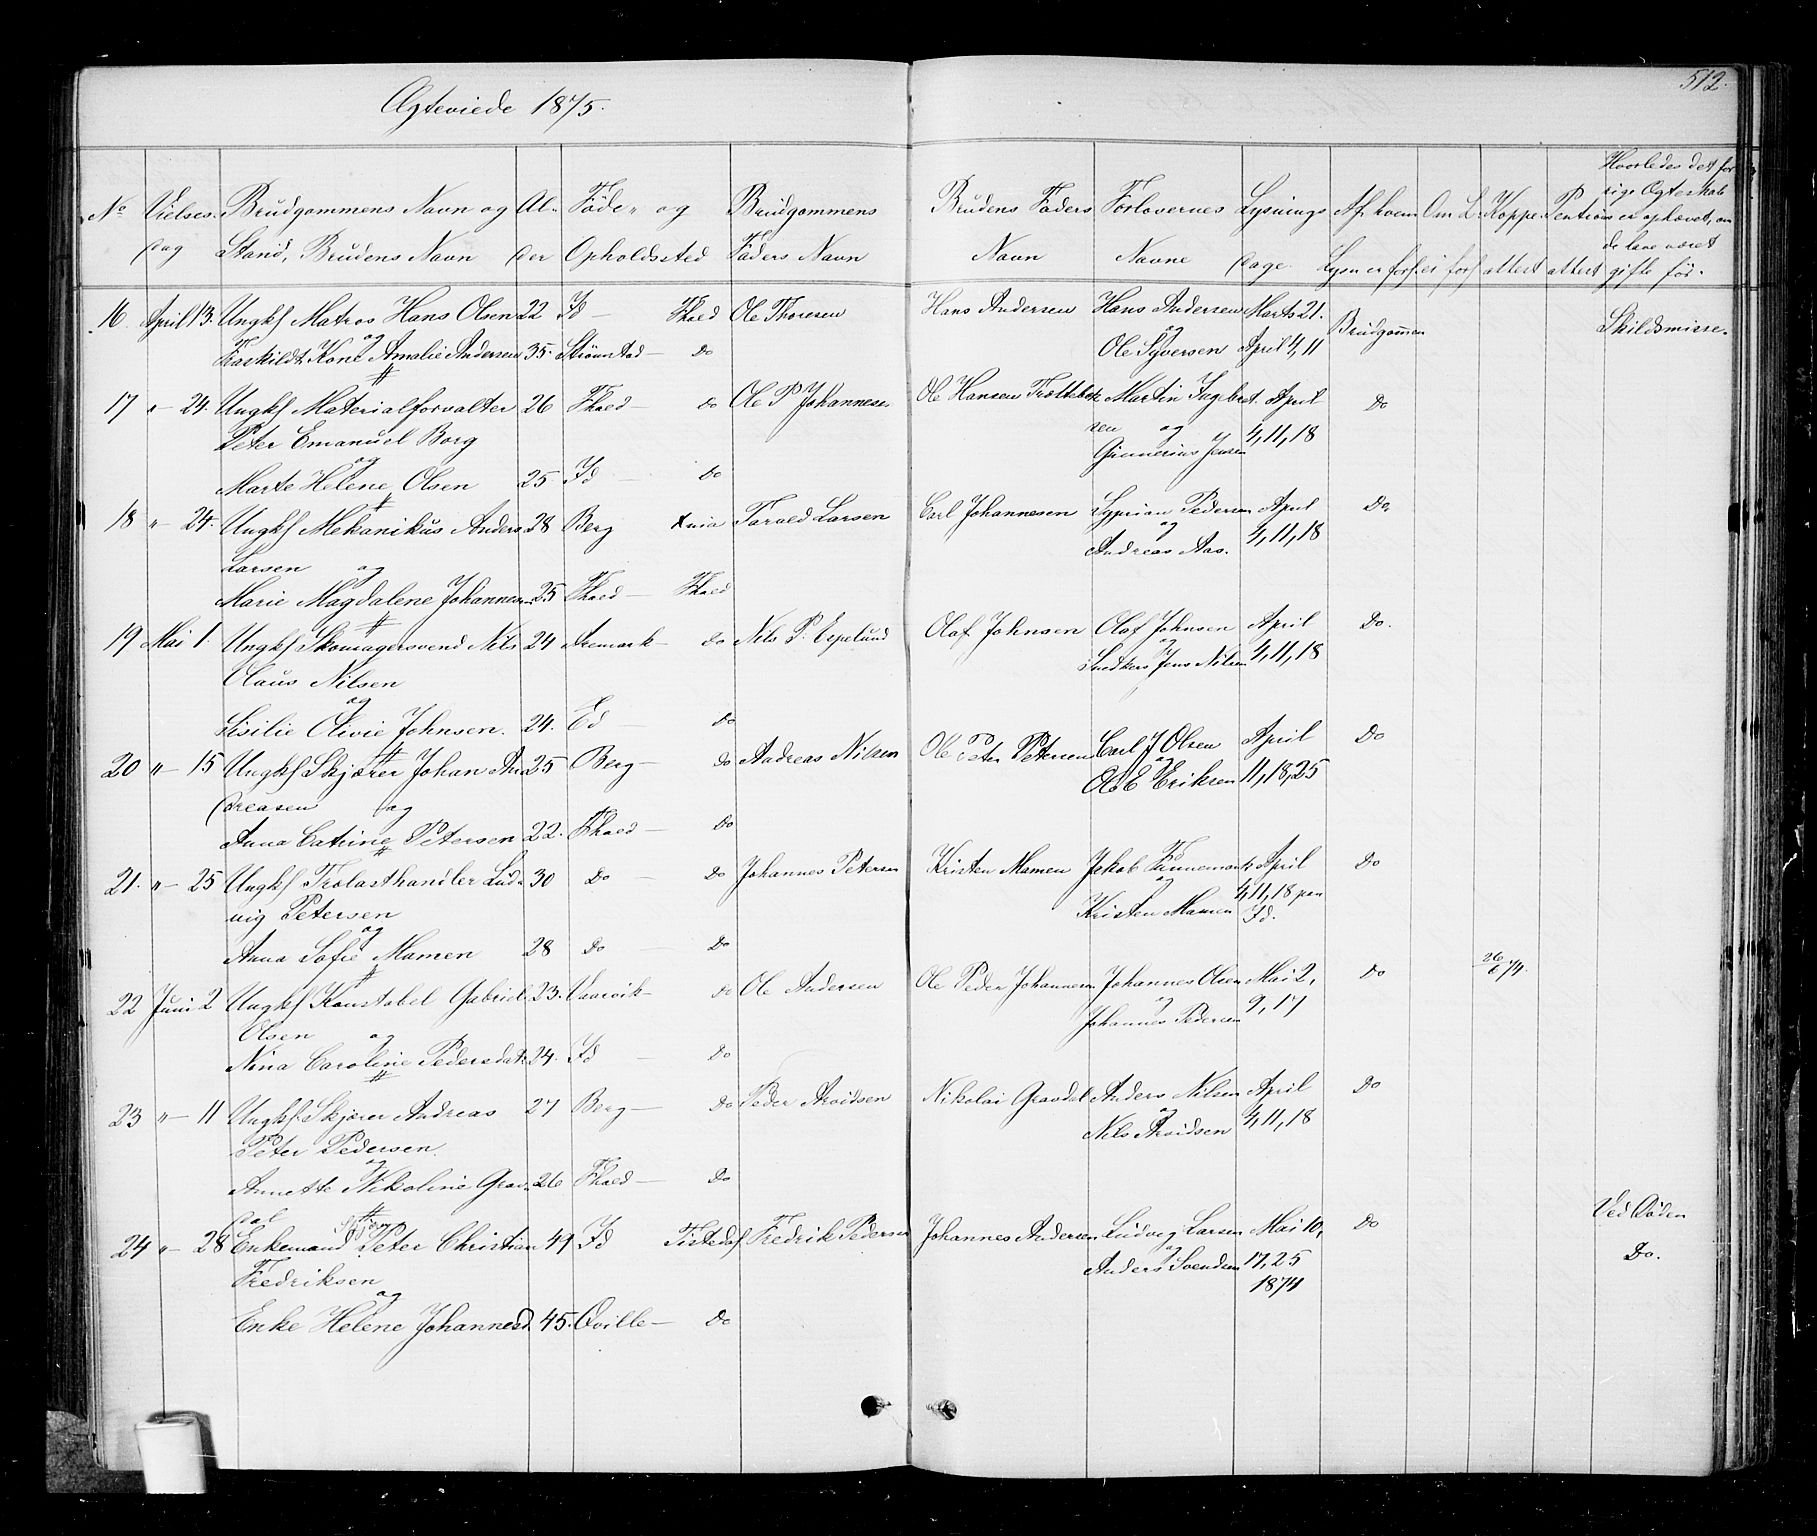 512.
Ægteviede 1875.
No Vielses- Brudgommens Navn og Al- Føde- og Brudgommens Brudens Faders Forlovernes Lysnings Af hvem Om L. Koppe- Hvorledes det for
dag Stand, Brudens Navn der Opholdssted Faders Navn Navn Navne dage. Lysn er forl. ei forl. attest attest
rige Ægteskab
er ophævet, om
de have været
gifte før.
16 April 13. Ungkl Matros Hans Olsen 22 Id — Fhald Ole Thoresen Hans Andersen Hans Andersen Marts 21. Brudgommen Skildsmisse.
og og
Fraskildt Kone Amalie Andersen 35. Strømstad — Do Ole Syversen April 4, 11
17 " - 24. Ungkl Materialforvalter 26 Fhald — Do Ole P Johannesen Ole Hansen Martin Ingebret- April Do
Peter Emanuel Borg sen og 4, 11, 18
og Gunnerius Jensen
Marte Helene Olsen 25 Id — Do
18 " - 24. Ungkl Mekanikus Anders 28 Berg Xnia Tarald Larsen Carl Johannesen Syprian Pedersen April Do.
Larsen og og 4, 11, 18
Andreas Aas.
Marie Magdalene Johannesen 25 Fhald — Fhald
19 Mai 1. Ungkl Skomagersvend Nils 24 Aremark — Do Nils P. Espelund Olaf Johnsen Olaf Johnsen April Do.
Claus Nilsen og 4, 11, 18
og Snedker Jens Nilsen
Sisilie Olivie Johnsen. 24. Ed — Do
20 " - 15 Ungkl Skjærer Johan An- 25 Berg — Do Andreas Nilsen Ole Peter Petersen Carl J Olsen April Do
dreasen og og 11, 18, 25
Ole E Eriksen
Anna Catrine Petersen 22. Fhald — Do
21. " - 25 Ungkl Trælasthandler Lud- 30 Do — Do Johannes Petersen Kristen Mamen Jakob Finnemark April Do
vig Petersen og 4, 11, 18 paa
og Kristen Mamen Id.
Anna Sofie Mamen 28 Do — Do
22 Juni 2 Ungkl Konstabel Gabriel 23. — Do Ole Andersen Ole Peder Johannesen Johannes Olsen Mai 2, Do 26/6 74.
Olsen og og 9, 17
Johannes Pedersen
Nina Caroline Pedersdat. 24. Id — Do
23 " - 11 Ungkl. Skjærer Andreas 27 Berg — Do Peder Arvidsen Nikolai Gravdal Anders Nilsen April Do
Peter Pedersen. og 4, 11, 18
og Nils Arvidsen
Annette Nikoline Grav- 26 Fhald — Do
dal
24 " - 28 Enkemand Peter Christian 49 Id Tistedal Fredrik Pedersen Johannes Andersen Ludvig Larsen Mai 10, Do Ved Døden
Fredriksen og 17, 25 Do.
og Anders Svendsen 1874
Enke Helene Johannesd. 45. Qville — Do